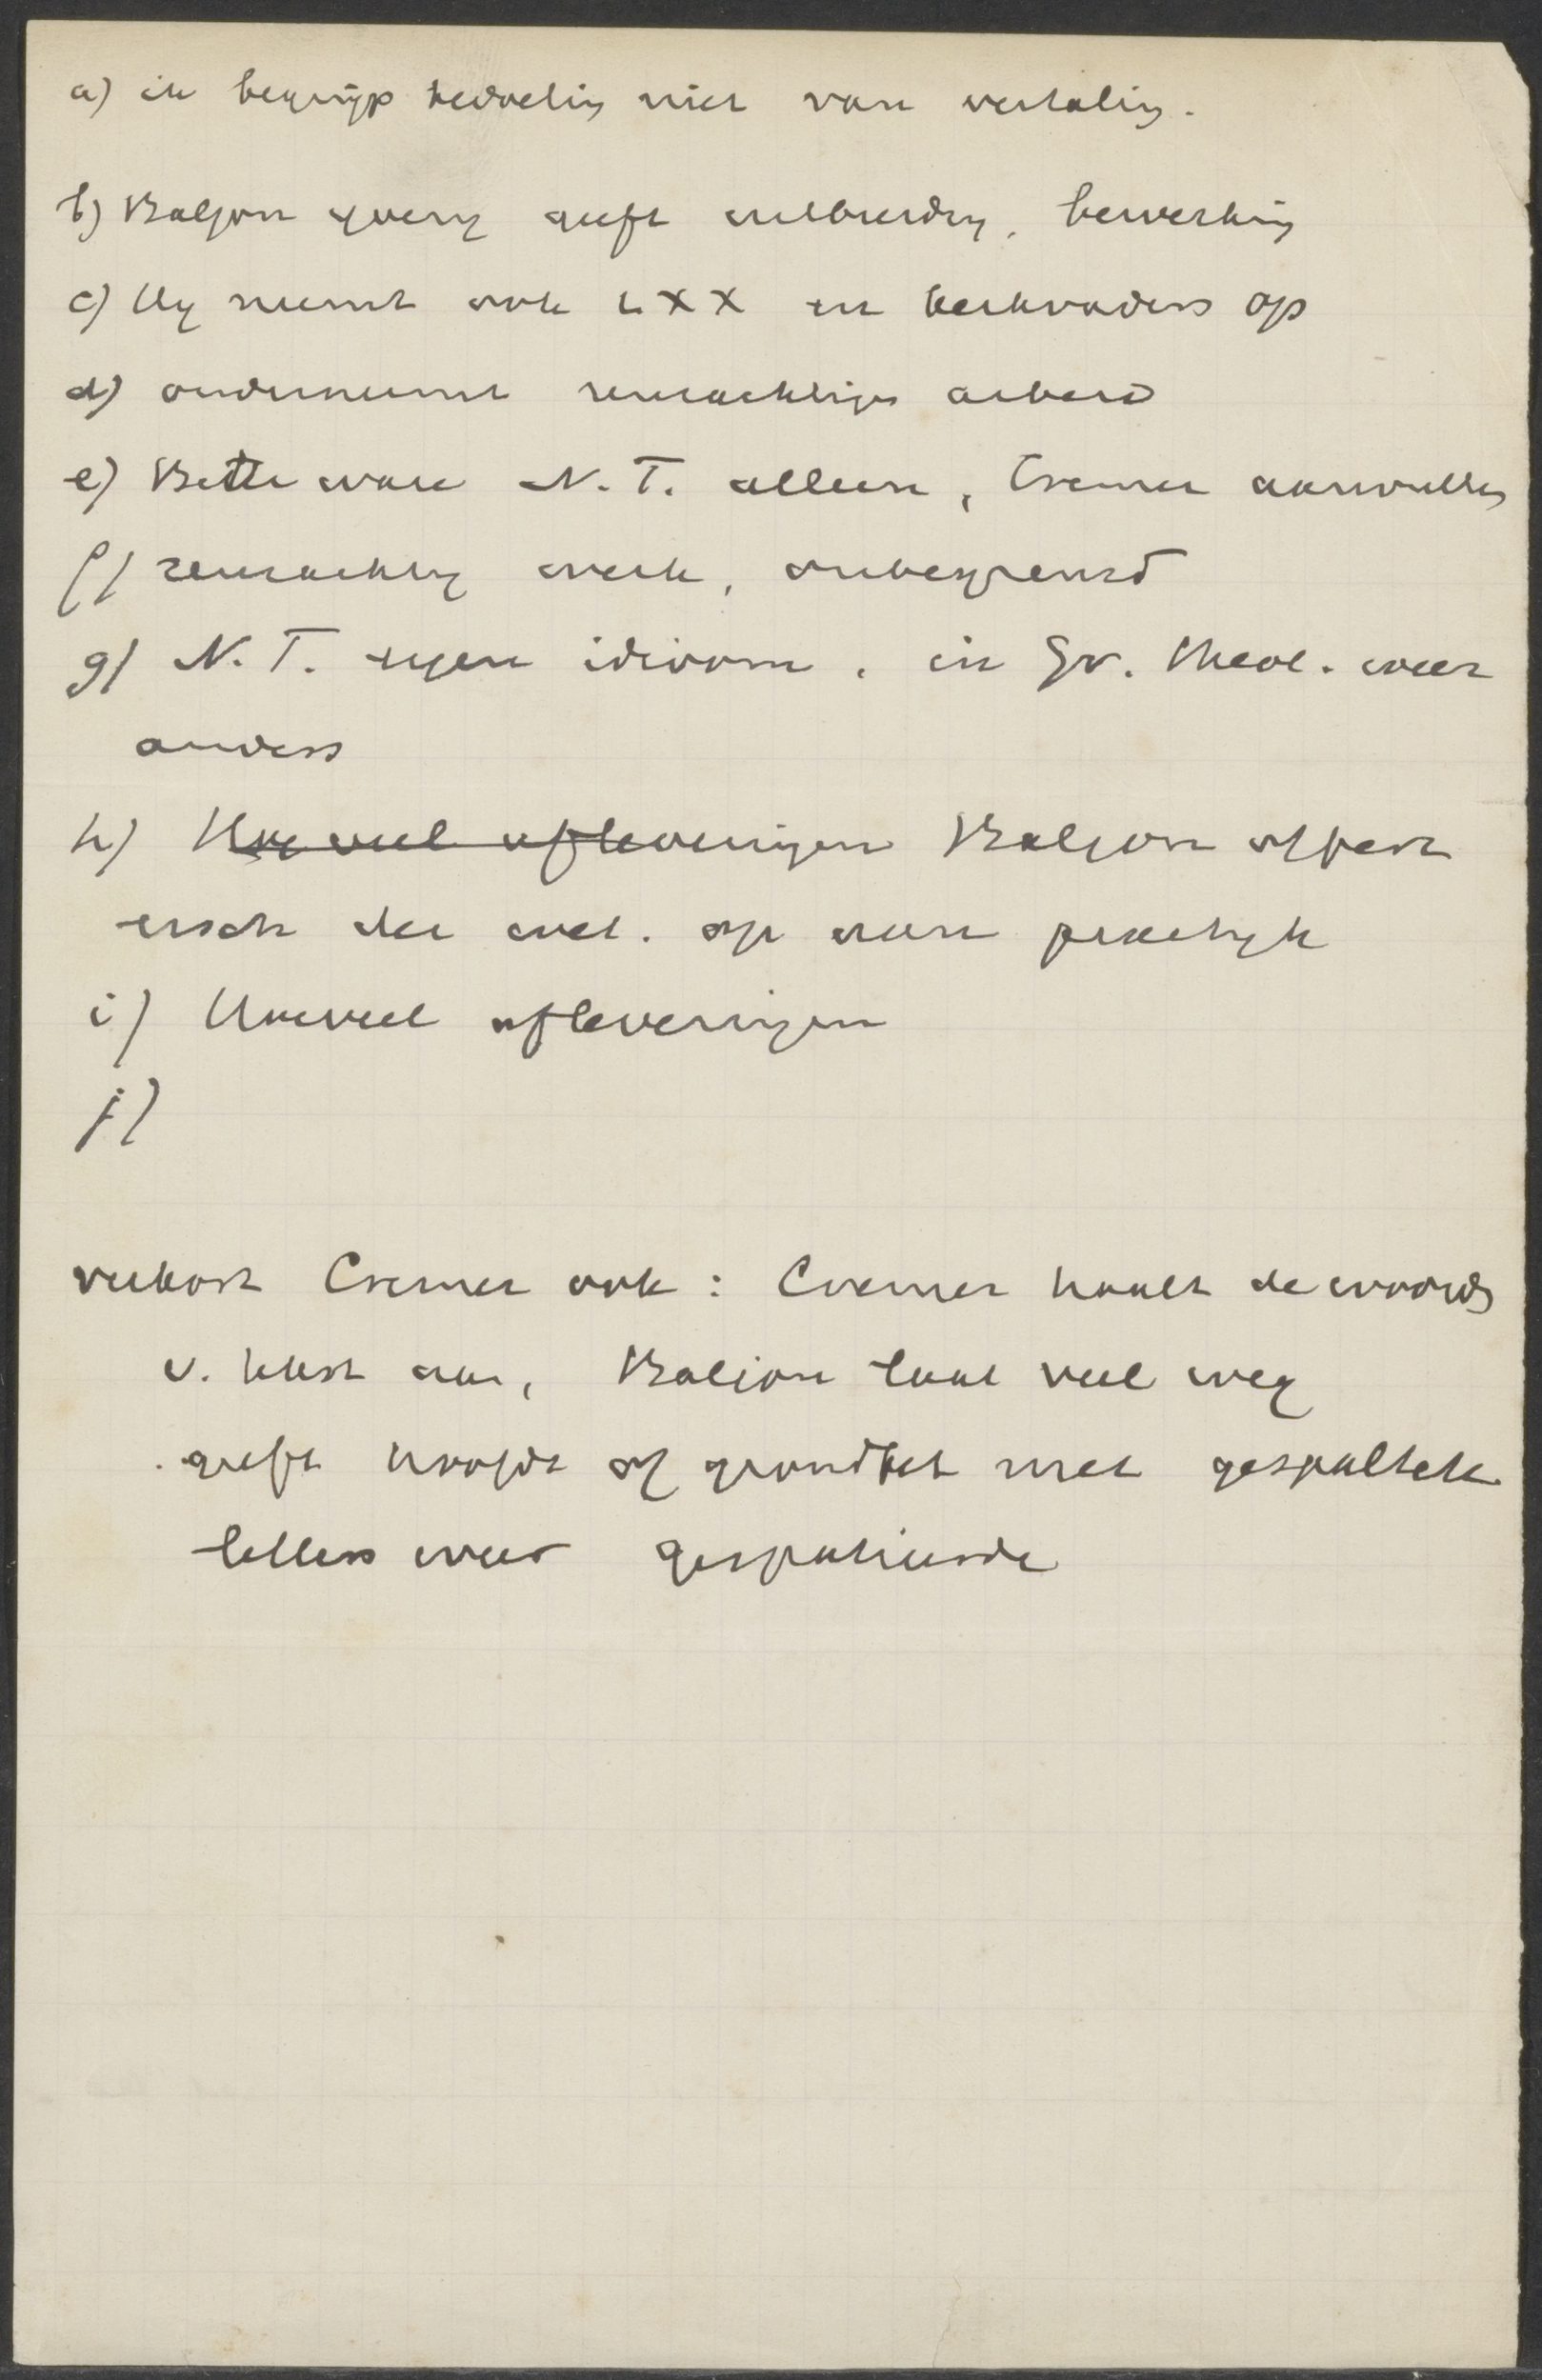 a) ik begrijp bedoeling niet van vertaling.
b) Baljon geeft uitbreiding, bewerking
c) Hij neemt ook LXX en kerkvaders op
d) onderneemt reusachtigen arbeid
e) Better ware N. T. alleen, Cremer aanvullen
f) reusachtig werk, onbegrensd
g) N. T. eigen idioom, in Gr. theol. weer
anders
h) Hoeveel afleveringen Baljon offert
eisch der wet. op aan practijk
i) Hoeveel afleveringen
j)
verkort Cremer ook: Cremer haalt de woorden
v. tekst aan, Baljon laat veel weg
geeft hoofdz of grondtekst met
letters weer gespatieerde